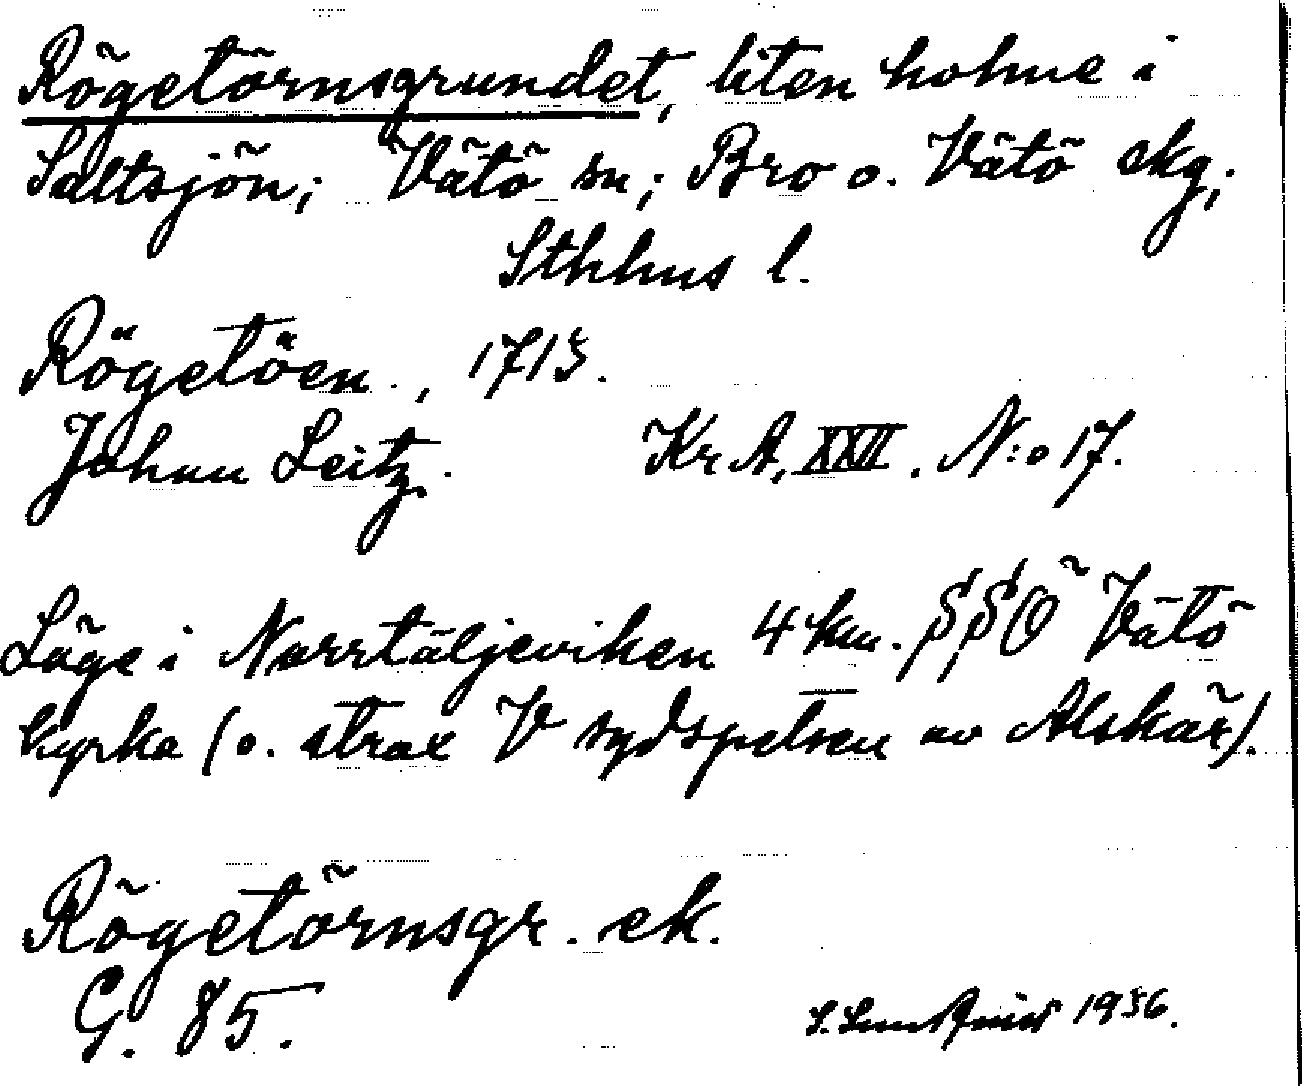 Rögetörnsgrundet, liten holme i
Saltsjön; Vätö sn; Bro o. Vätö skg;
Sthlms l.
Rögetöen., 1713.
Johan Leitz. KrA, XXII. N:o 17.
Läge i Norrtäljeviken 4 km. SSÖ Vätö
kyrka (o. strax V sydspetsen av Alskär).
Rögetörnsgr. ek.
G. 85.
1936.